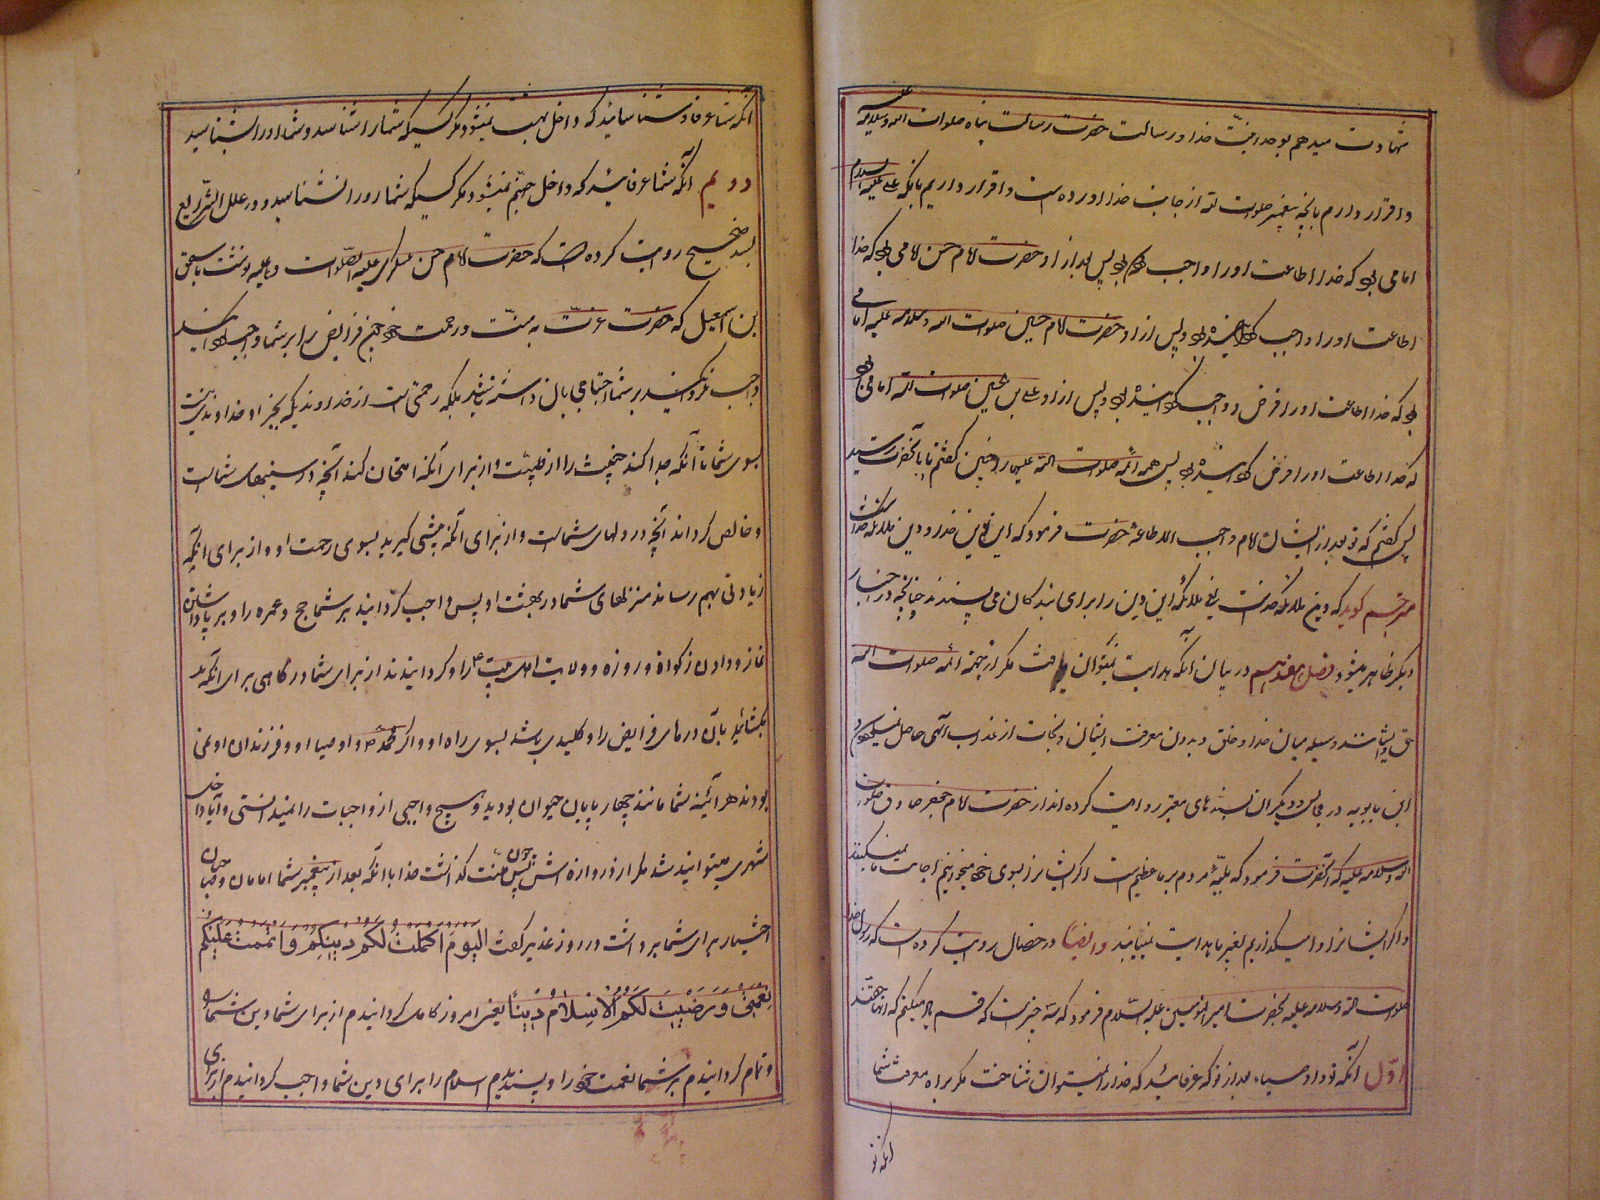 شهادت میدهم بوحدانیت خدا و رسالت حضرت رسالت پناه صلوات الله وسلامه علیه
و اقرار دارم بانچه پیغمبر صلوت الله از جانب خدا اورده است و اقرار داریم بانکه علی علیه السلام
امامی بود که خدا اطاعت اورا واجب کرده بود پس بعد از او حضرت امام حسن امامی بود که خدا
اطاعت اورا واجب گردانیده بود و پس از او حضرت امام حسین صلوت الله وسلامه علیه امامی
بود که خدا اطاعت اورا فرض و واجب گردانیده بود و پس از او علی بن الحسین صلوت الله امامی بود
که خدا اطاعت اورا فرض گردانیده بود پس همه ائمه صلوت الله علیهم را چنین گفتم تا بانحضرت رسید
پس گفتم که تو بعد از ایشان امام واجب الاطاعة حضرت فرمود که این دین خدا و دین ملائکه خداست
مترجم گوید که دین ملائکه است یعنی ملائکه این دین را برای بندکان می پسندند چنانچه در اخبار
دیگر ظاهر میشود فصل هفدهم در بیان آنکه هدایت نمیتوان یافت مکر از جهة ائمه صلوت الله
حق و ایشانند وسیله میان خدا و خلق و بدون معرفت ایشان نجات از عذاب الهی حاصل نمیکردد
ابن بابویه در مجالس و دیگران بسندهای معتبر روایت کرده اند از حضرت امام جعفر صادق صلوات
الله وسلامه علیه که آنحضرت فرمود که بلیّه مردم بر ما عظیم است اگر ایشانرا بسوی خود میخوانیم اجابت ما نمیکنند
و اگر ایشانرا وامیگذاریم بغیر ما هدایت نمییابند وایضا در خصال روایت کرده است که رسول خدا
صلوت الله وسلامه علیه بحضرت امیر المؤمنین علیه السّلام فرمود که سه چیز است که قسم یاد میکنم که انها حقند
اوّل آنکه تو و اوصیاء بعد از تو که عرفائید که خدا را نمیتوان شناخت مکر براه معرفت شما
انکه تو
آنکه شما عرفاء شناسانیدکه داخل بهشت نمیشود مکر کسیکه شمارا شناسد و شما اورا بشناسید
دویم آنکه شما عرفائید که داخل جهنم نمیشود مکر کسیکه شمارو را نشناسید و در علل الشرایع
بسند صحیح روایت کرده است که حضرت امام حسن عسکری علیه الصلوات و علیه نوشت باسحق
بن اسمعیل که حضرت عزت به منّت و رحمت خود چون فرایض را بر شما واجب گردانید
واجب نگردانید بر شما احتیاجی بان داشته باشد بلکه رحمتی است از خداوندیکه بجز او خداوندی نیست
بسوی شما تا آنکه جدا کند خبیث را از طیّب و از برای آنکه امتحان کند آنچه در سینهای شماست
و خالص کرداند آنچه در دلهای شماست و از برای آنکه پیشی کیرید بسوی رحمت او و از برای انکه
زیادتی بهم رساند منزلهای شما در بهشت او پس واجب کردانید بر شما حج و عمره را و بر پا داشتن
نماز و دادن زکواة و روزه و ولایت اهل بیت ع را و کردانید از برای شما درکاهی برای آنکه
بکشائید بآن درهای فرایض را و کلیدی باشد بسوی راه او و اگر محمّد ص و اوصیا او و فرزندان او نمی
بودند هر آئینه شما مانند چهار پایان حیران بودید و هیچ واجبی از واجبات را نمیدانستی و آیا داخل
شهری میتوانید شد مکر از دروازه اش پس چون منّت گذاشت خدا بانکه بعد از پیغمبر شما امامان و
اختیار برای شما برداشت در روز غدیر گفت اَلْیَوْمَ اَکْمَلْتُ لَکُمْ دینَکُمْ وَ اَتْمَمْتُ عَلَیْکُمْ
نِعْمَتی وَ رَضیتُ لَکُمُ الْاِسْلامَ دیناً یعنی امروز کامل کردانیدم از برای شما دین شما را
و تمام کردانیدم بر شما نعمت خود را و پسندیدم اسلام را برای دین شما و واجب کردانیدم از برای